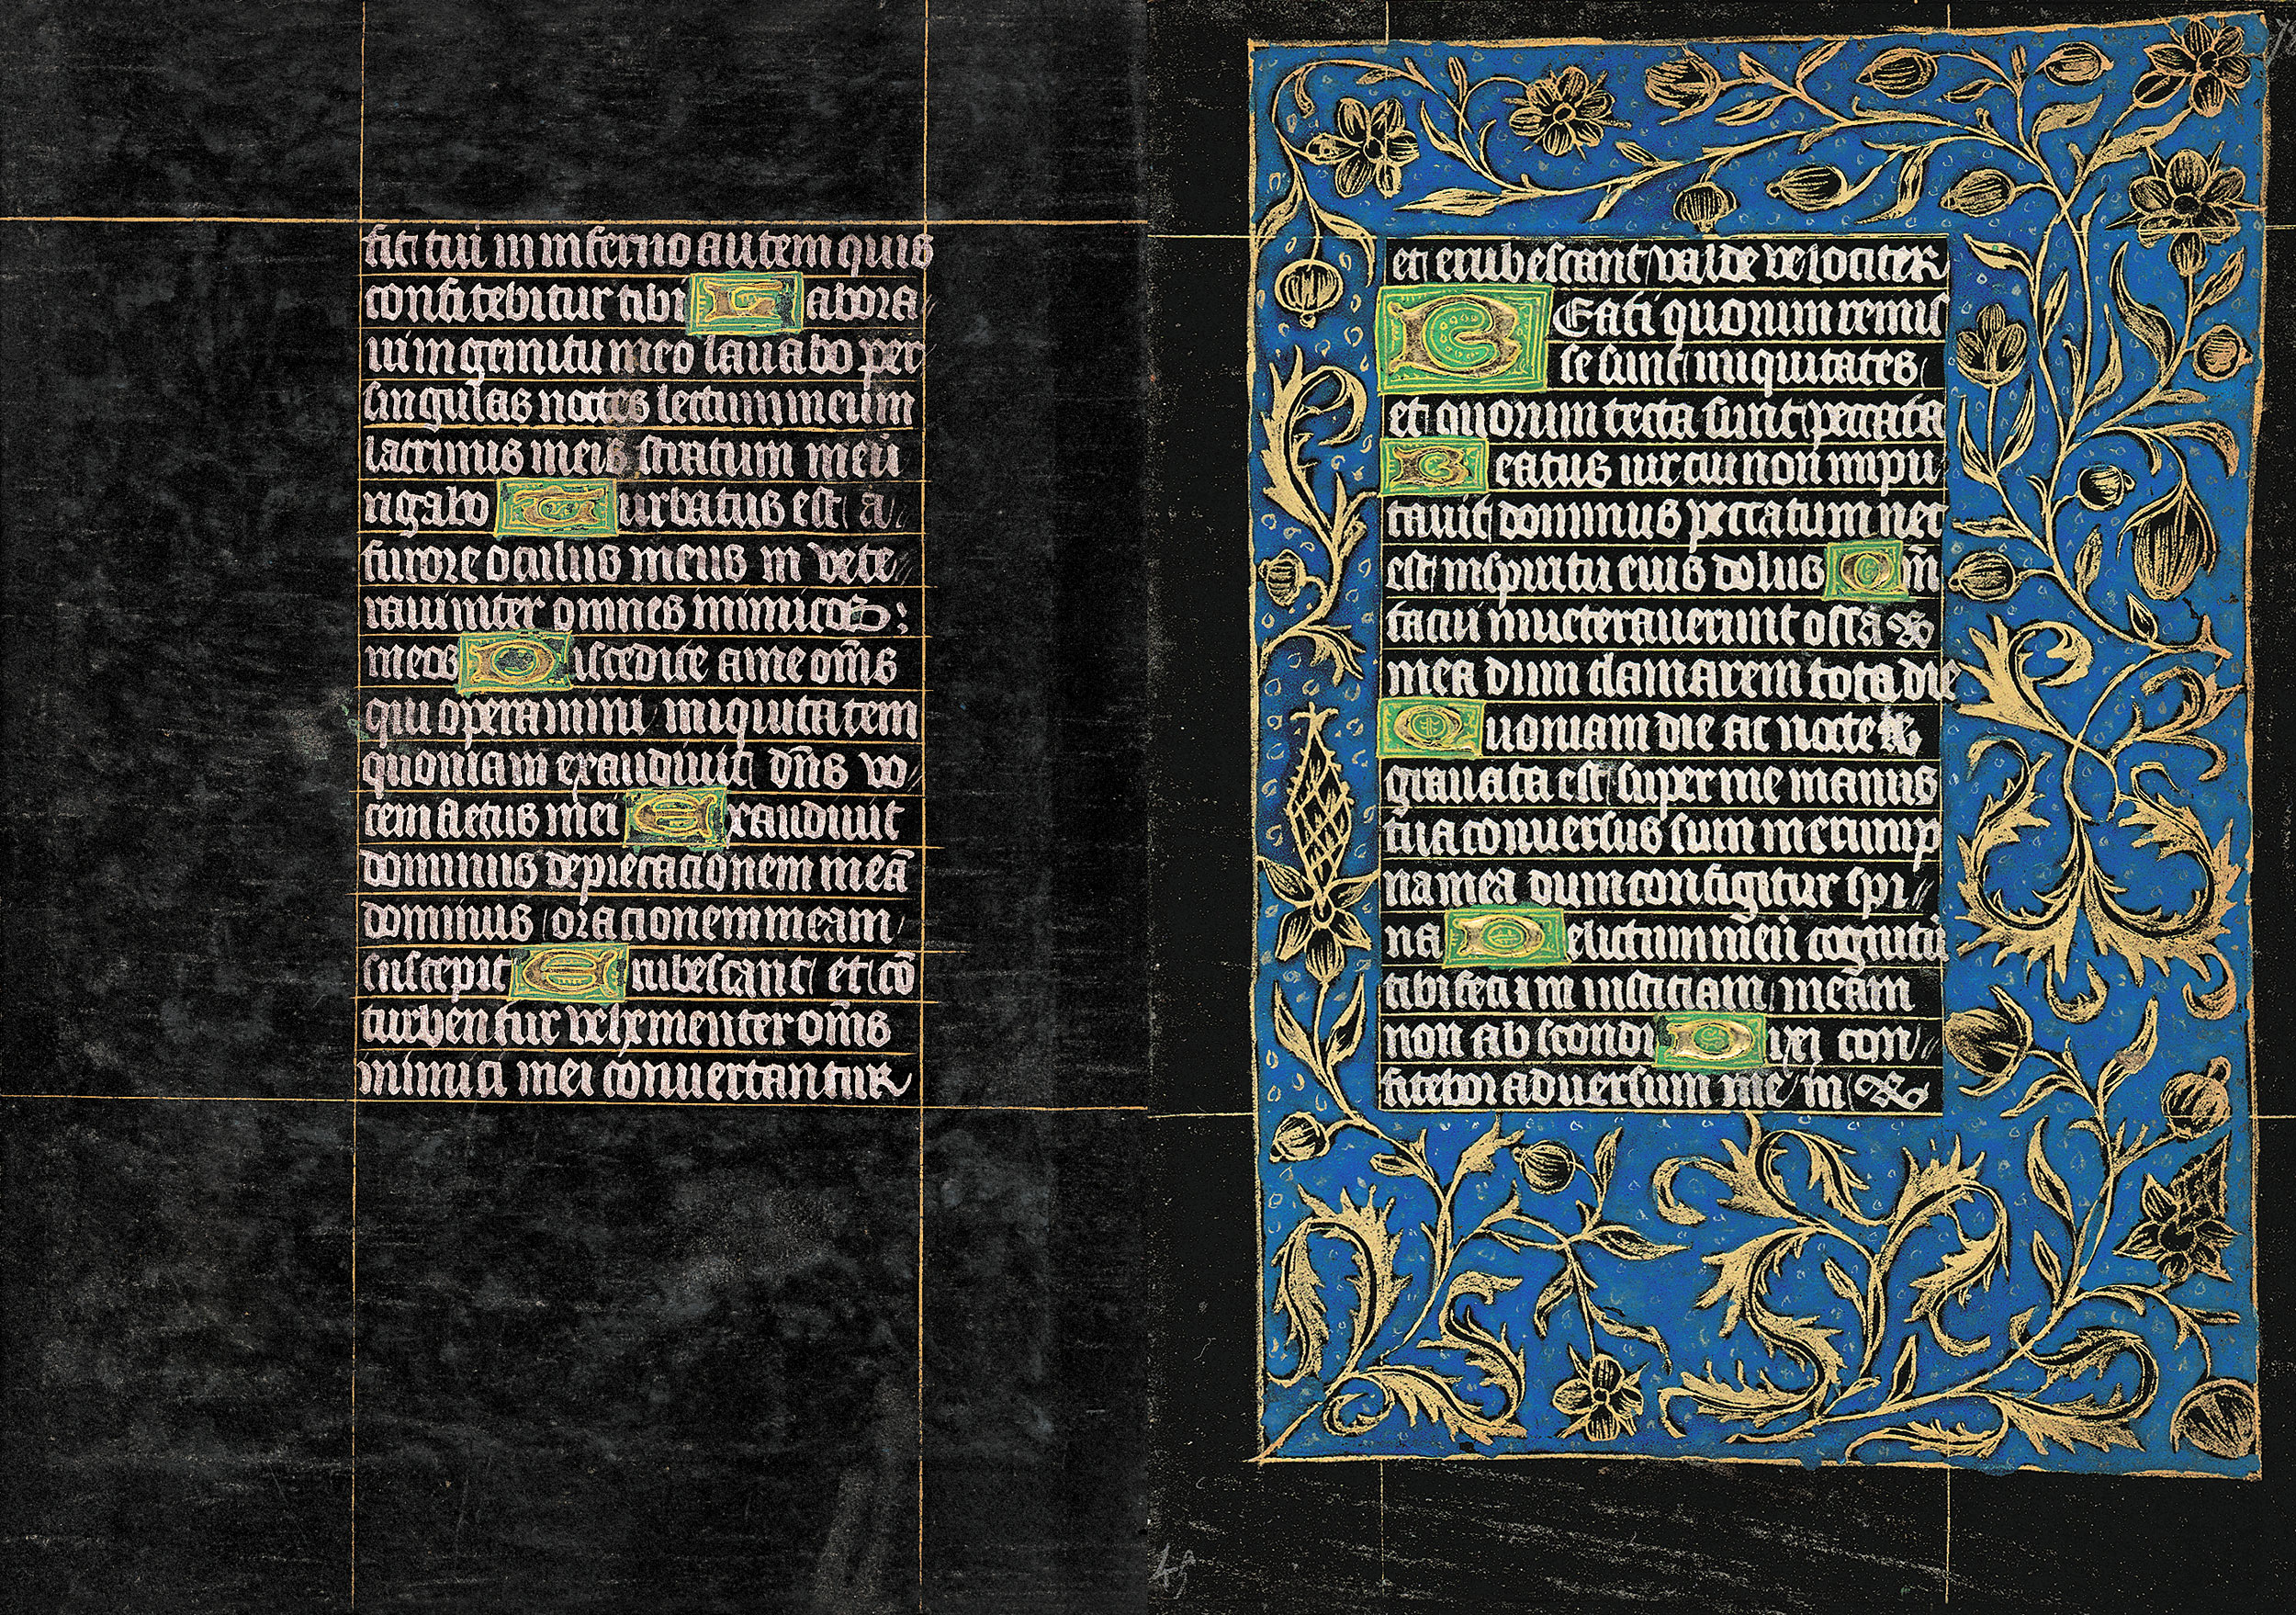 sit tui in inferno autem quis
confitebitur tibi Labora
ui in gemitu meo lauabo per
singulas noctes lectum meum
lacrimis meis stratum meū
rigabo Turbatus est a
furore oculus meus in vete
raui inter omnes inimicos:
meos Discedite a me om̄s
qui operamini iniquitatem
quoniam exaudiuit dn̄s vo
cem fletus mei Exaudiuit
dominus deprecacionem meā
dominus oracionem meam
suscepit Erubescant et cō
turbentur vehementer om̄s
inimici mei conuertantur
et erubescant valde velociter
BEati quorum remis
se sunt iniquitates
et quorum tecta sunt peccata
Beatus uir cui non inpu
tauit dominus peccatum nec
est in spiritu eius dolus Qm̄
tacui inueterauerunt ossa
mea dum clamarem tota die
Quoniam die ac nocte
grauata est super me manus
tua conuersus sum in erump
na mea dum configitur spi
na Delictum meū cognitū
tibi feci et in iusticiam meam
non abscondi Dixi con
fitebor aduersum me in